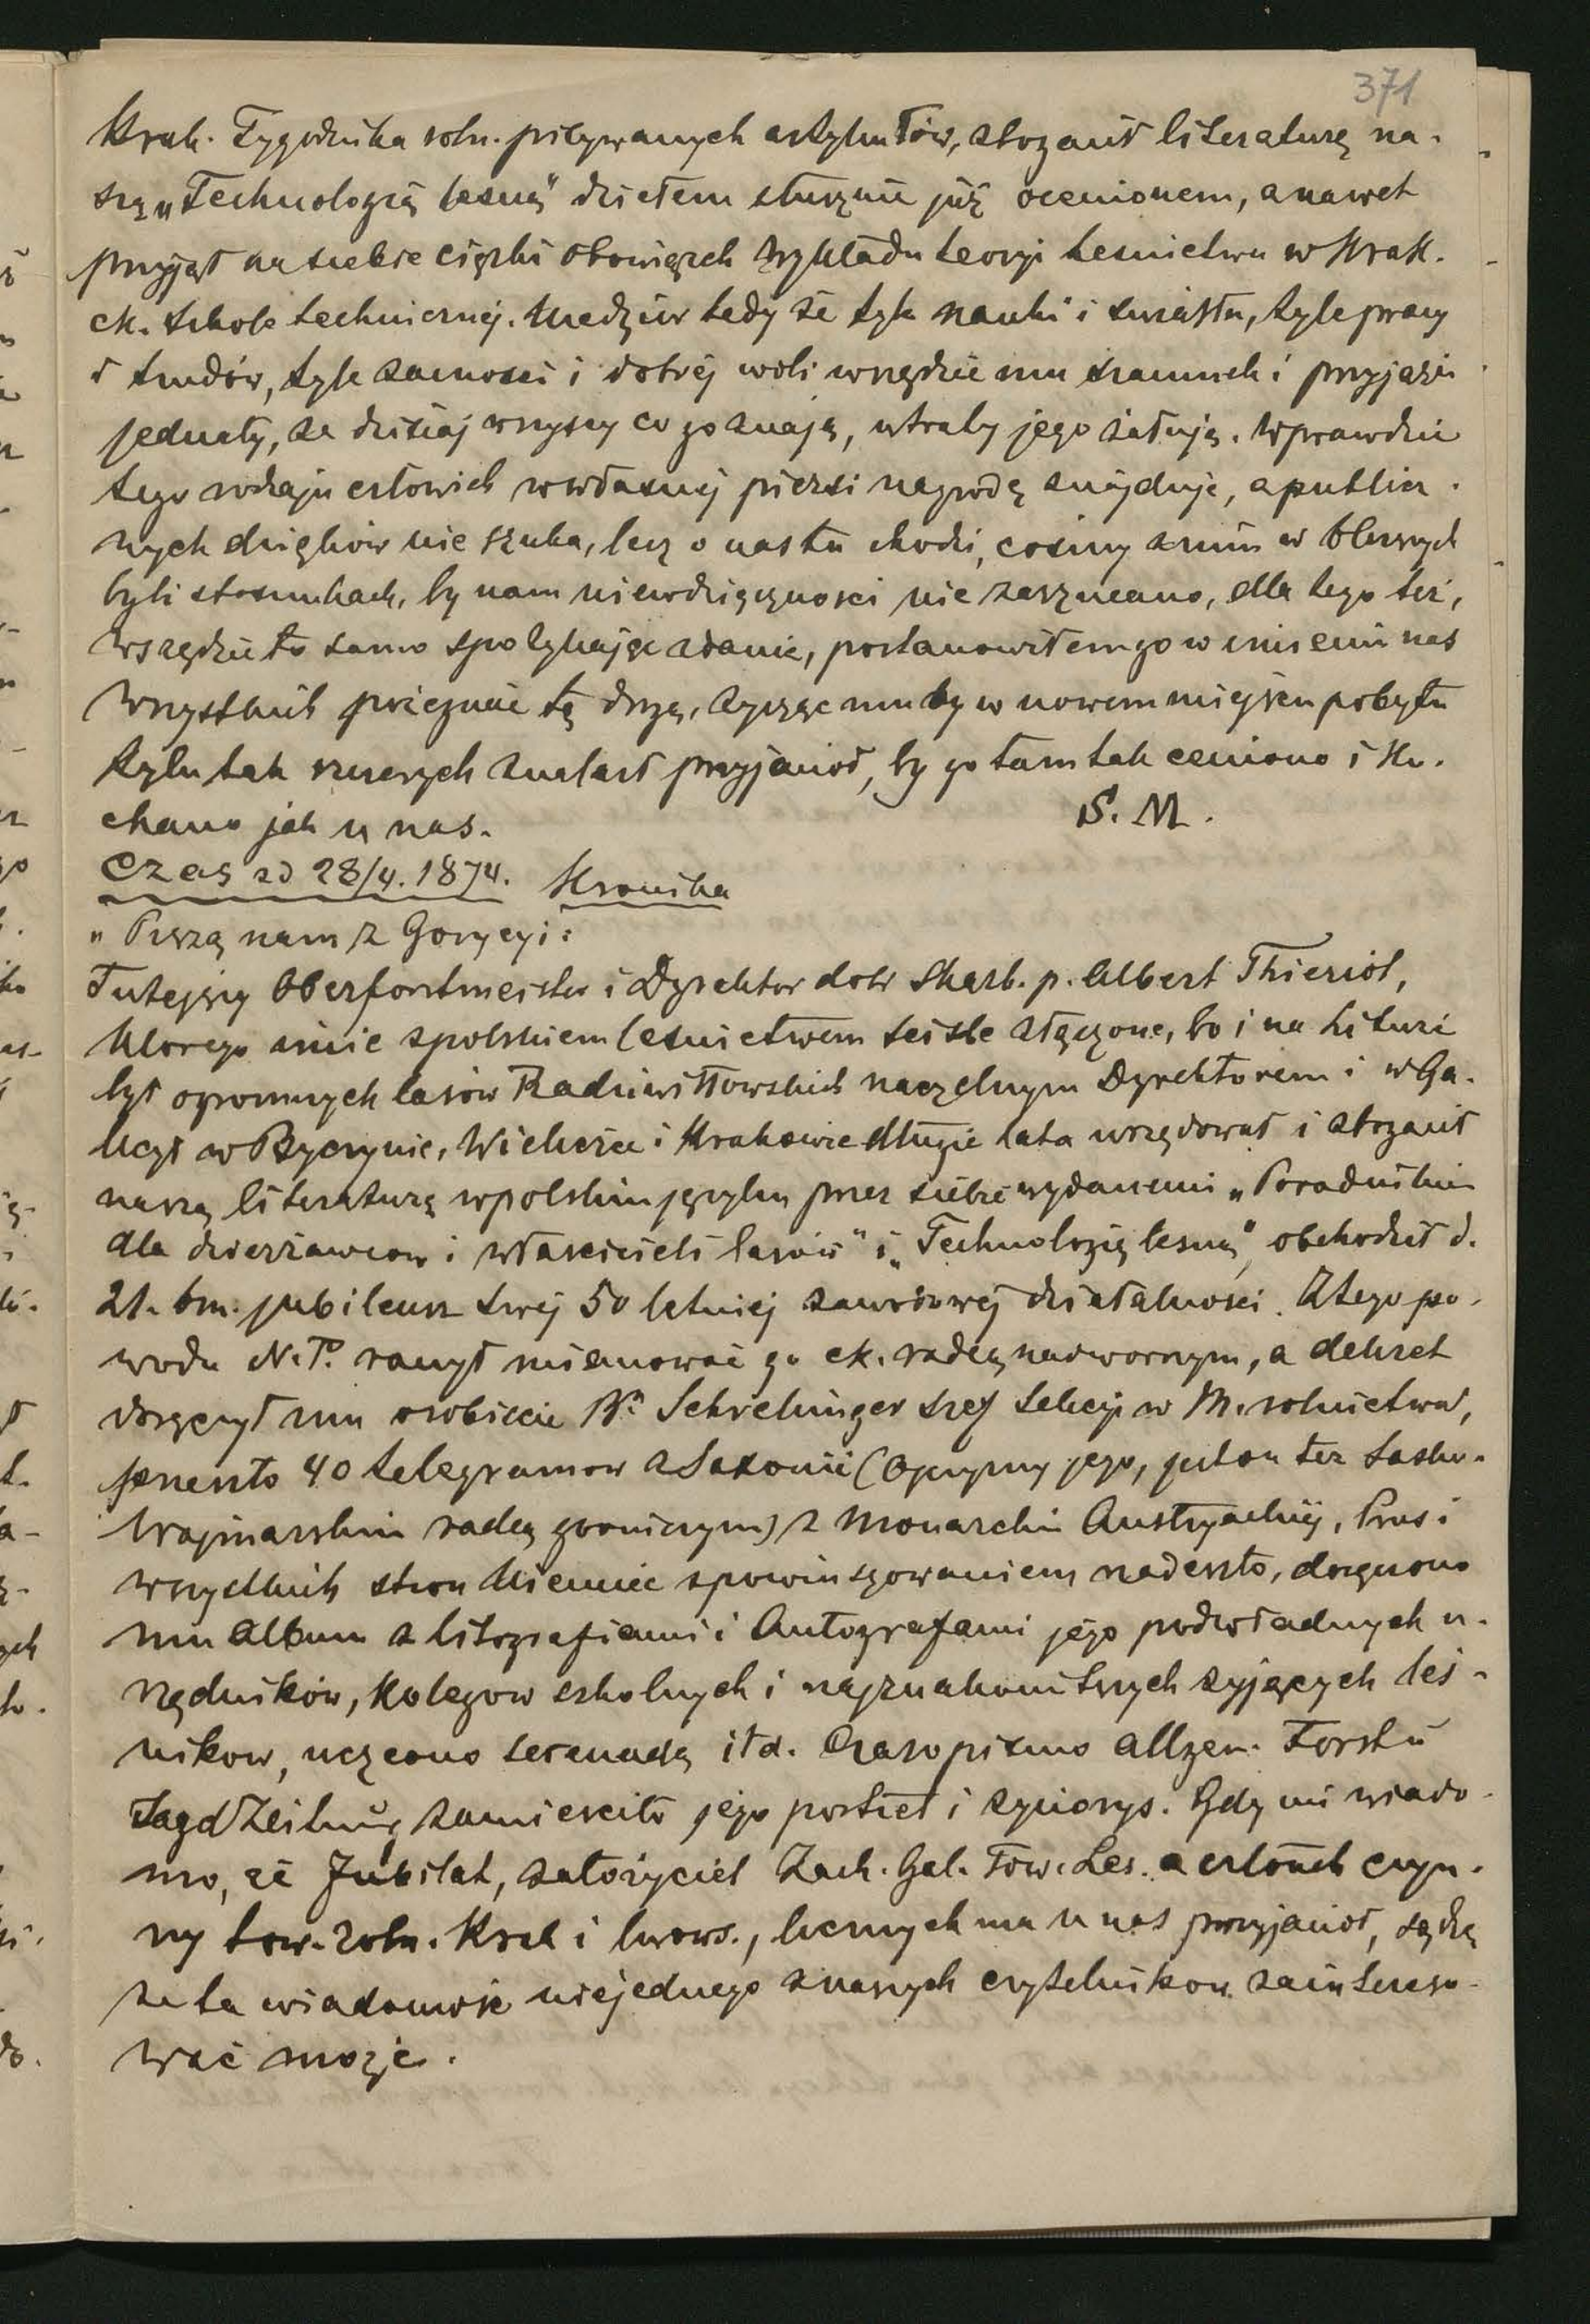 371
Krak. Tygodnika roln. pisywanych artykułów, zbogacił literaturę na-
szą „Technologią lesną" dziełem słusznie już ocenionem, a nawet
przyjął na siebie ciężki obowiązek wykładu teoryi lesnictwa w Krak.
ck. szkole technicznéj. Niedziw tedy że tyle nauki i światła, tyle pracy
i trudów, tyle zacnosci i dobréj woli wszędzie mu szacunek i przyjazń
jednały, że dzisiaj wszyscy co go znają, utraty jego żałują. Wprawdzie
tego rodzaju człowiek w własnéj piersi nagrodę znajduje, a publicz-
nych dzięków nie szuka, lecz o nas tu chodzi, cosmy z nim w bliższych
byli stosunkach, by nam niewdzięcznosci nie zarzucano, dla tego też,
wszędzie to samo spotykając zdanie, postanowiłem go w imieniu nas
wszystkich pożegnać tą drogą, życząc mu by w nowem miejscu pobytu
tylu tak szczerych znalazł przyjaciół, by go tam tak ceniono i ko-
chano jak u nas.
S. M.
Czas z d 28/4. 1874. Kronika
„Piszą nam z Gorycyi:
Tutejszy Oberforstmeister i Dyrektor dóbr Skarb. p. Albert Thieriot,
ktorego imie z polskiem lesnictwem sciśle złączone, bo i na Litwie
był ogromnych lasów Radziwiłłowskich naczelnym Dyrektorem i w Ga-
licyi w Byczynie, Wieliczce i Krakowie długie lata urzędował i zbogacił
naszą literaturę w polskim języku przez siebie wydanemi „Poradnikiem
dla dzierżawcow i włascicieli lasów" i „Technologią lesną", obchodził d.
21. bm. jubileusz swéj 50 letniéj zawodowéj działalnosci. Z tego po-
wodu N. P. raczył mianować go ck. radcą nadwornym, a dekret
doręczył mu osobiscie Br. Schrekinger szef sekcyi w M. rolnictwa,
ponenito 40 telegramow z Saxonii (Ojczyzny jego, gdzie też Sasko-
Wajmarskim radcą granicznym) z Monarchii Austryackiéj, Prus i
wszystkich stron Niemiec z powinszowaniem nadeszło, doręczono
mu album z litografiami i Autografami jego podwładnych u-
rzędników, kolegow szkolnych i najznakomitszych żyjących leś-
nikow, uczczono serenadą itd. Czasopismo Allgem. Forst ŭ
Jagd Zeitung zamiescito jego portret i życiorys. Gdy mi wiado-
mo, że Jubilat, założyciel Zach. Gal. Tow. Les. a członek czyn-
ny tow. roln. Krak i lwows., licznych ma u nas przyjaciół, sądzę
że ta wiadomość niejednego z naszych czytelnikow zaintereso-
wać może.